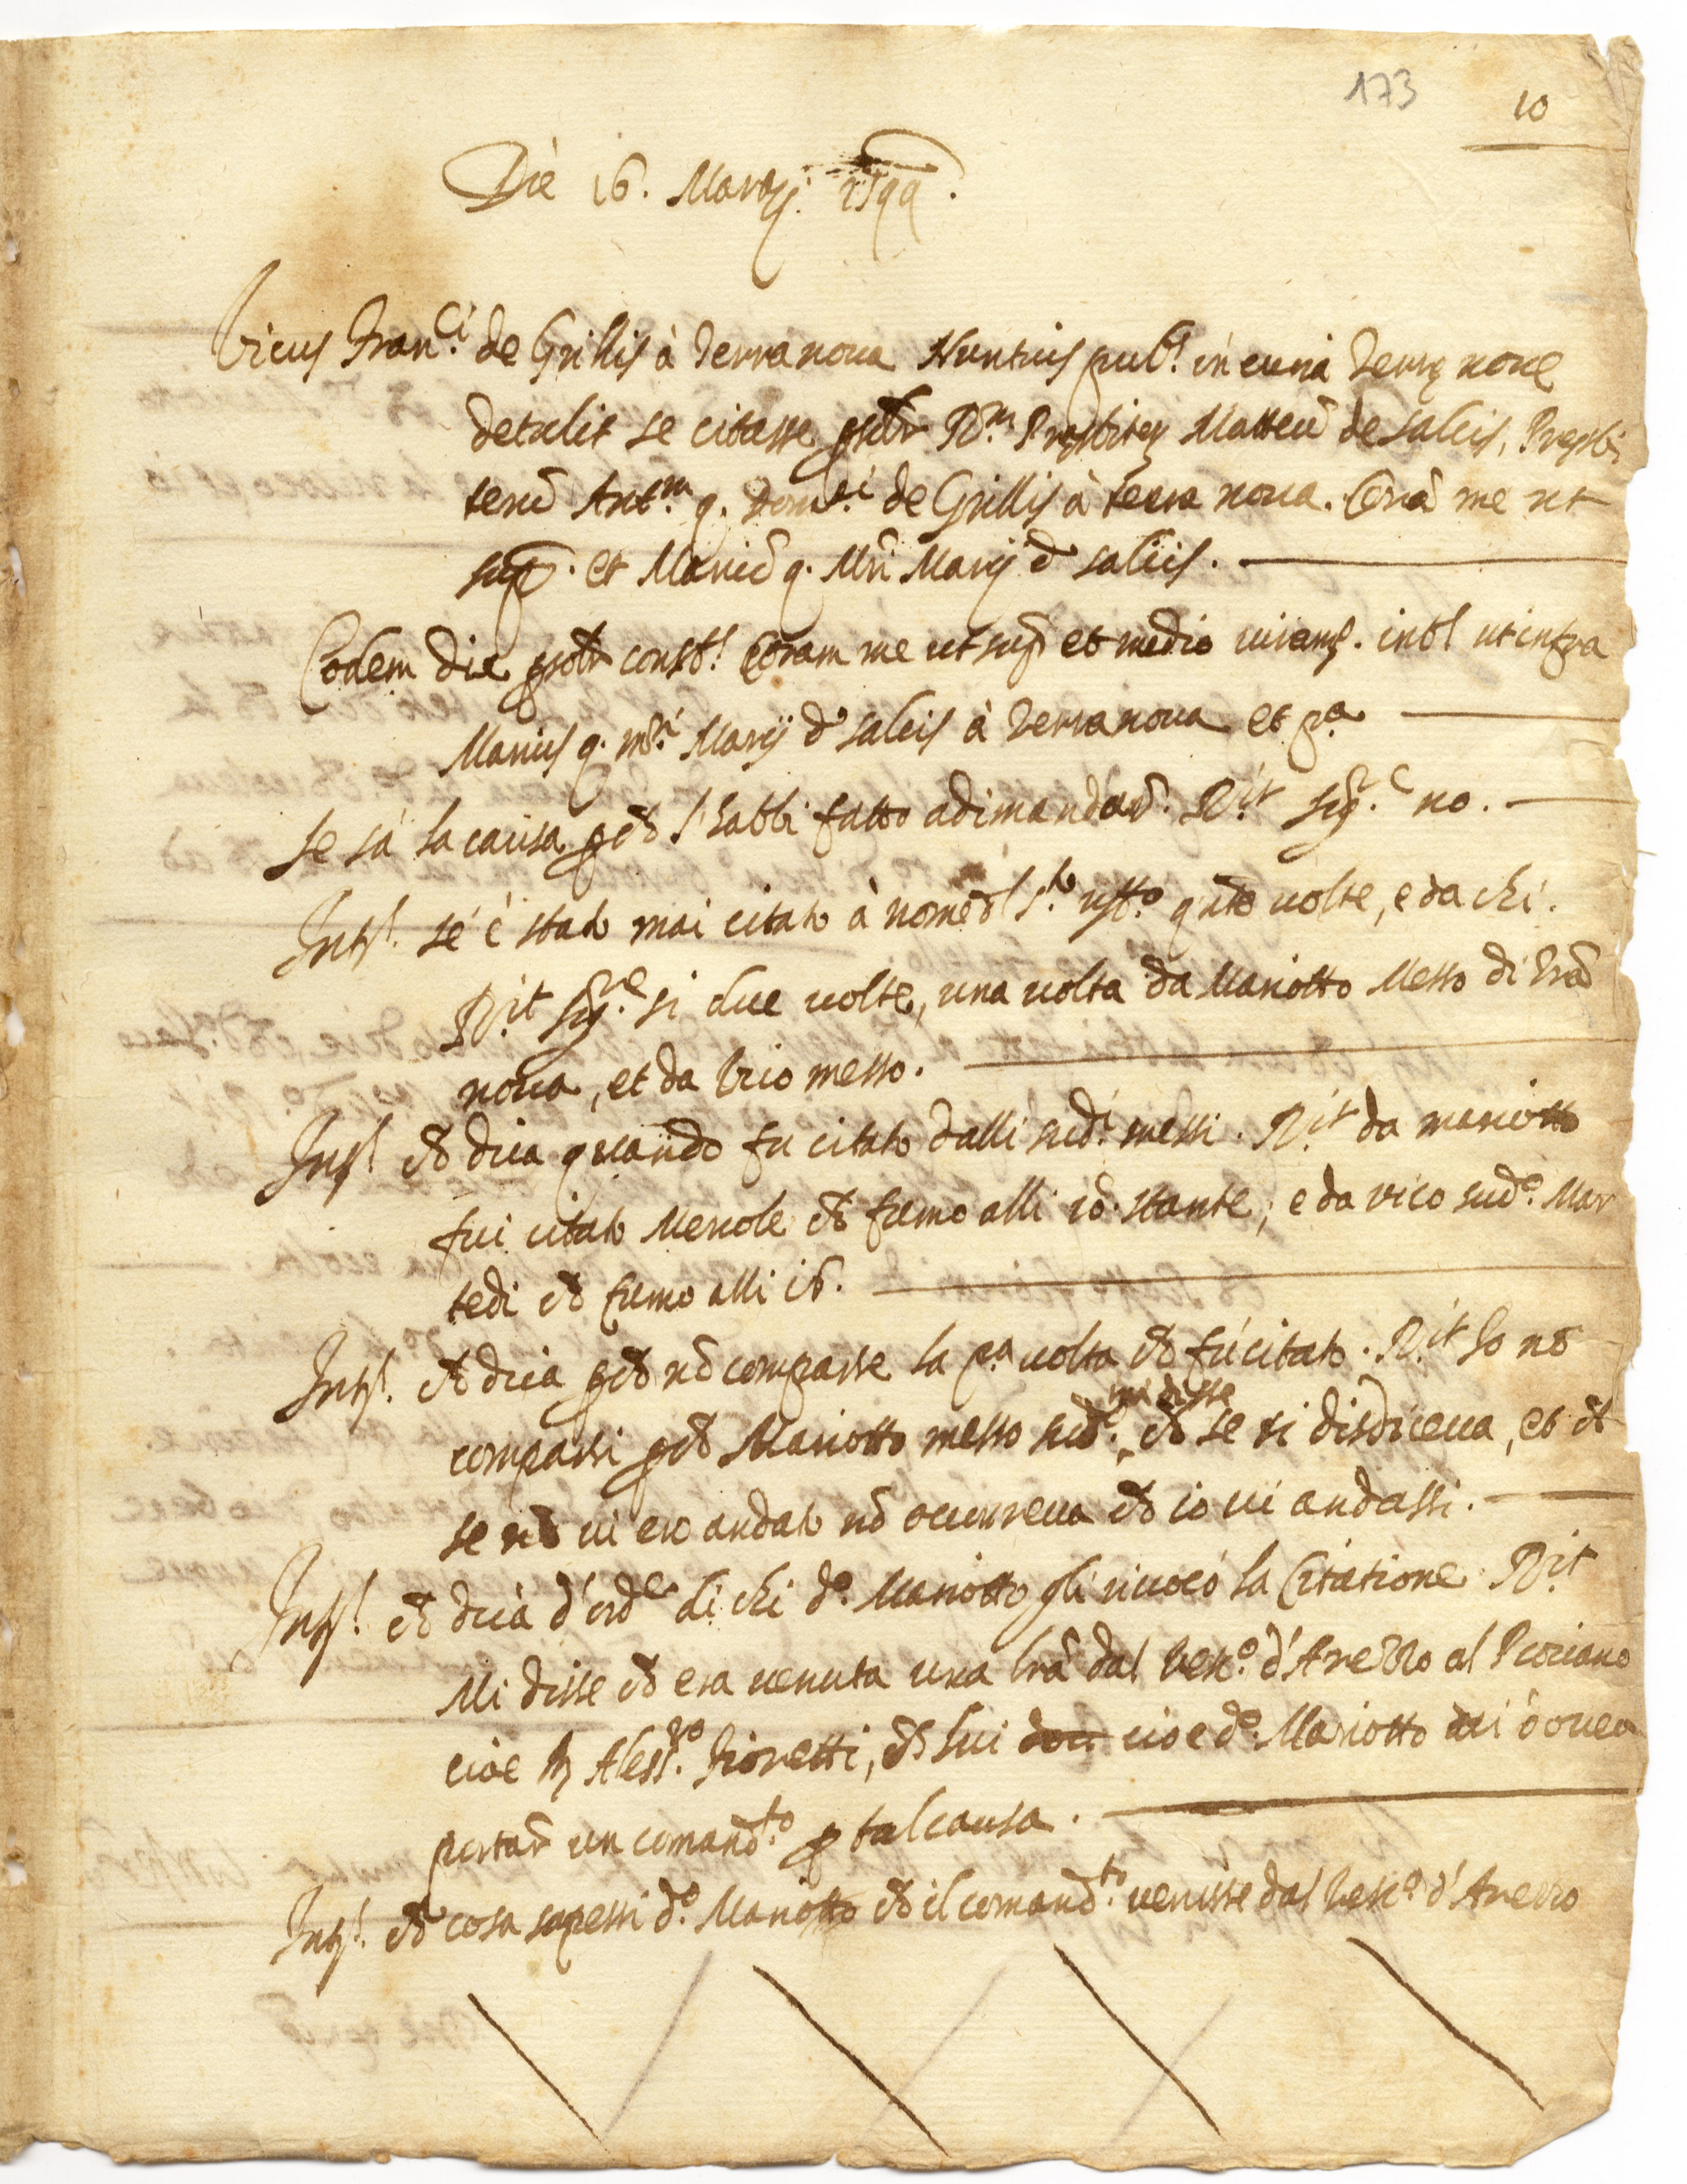 173
10
Die 16. Martij. 1599.
Vicus Fran.ci de Grillis à Terranoua Nuntius pub.s in curia Terrę noue
detulit se citasse R.m Presbiterũ Matteũ de Salcis, Presbi
terũ Ant.m q. Dom.ci de Grillis à terra noua. Corã me ut
sup. et Mariũ q. Mri Marij d Salcis.
Eodem die const.s Coram me ut sup.a et medio iuram.o int.s ut infra
Marius q. m.ri Marij d Salcis à Terranoua et p.a
se sà la causa pchè s'habbi fatto adimandar. R.it sig.re no.
Int.s se è stato mai citato à nome d S.to uff.o q.te uolte, e da chi.
R.it sig.re si due uolte, una uolta da Mariotto Messo di Trã
noua, et da Vico messo.
Int.s ch dica quando fu citato dalli sud.i messi. R.it da mariotto
fui citato Mercole ch fumo alli 10. stante; e da vico sud.o Mar
tedi ch fumo alli 16.
Int.s ch dica pch nõ comparse la p.a uolta ch fù citato. R.it Io nõ
comparsi pch Mariotto messo sud.o mi disse ch se si disdiceua, et ch
se nõ ui ero andato nõ occorreua ch io ui andassi.
Int.s ch dica d'ord.e di chi d.o Mariotto gli riuocò la Citatione R.it
Mi disse ch era uenuta una lrã dal Vesc.o d'Arezzo al Piouano
cioe Aless.ro Fioretti, ch lui dou cioe d.o Mariotto mi doueua
portar un comand.to p tal causa.
Int.s ch cosa sapessi d.o Mariotto ch il comand.to uenisse dal Vesc.o d'Arezzo